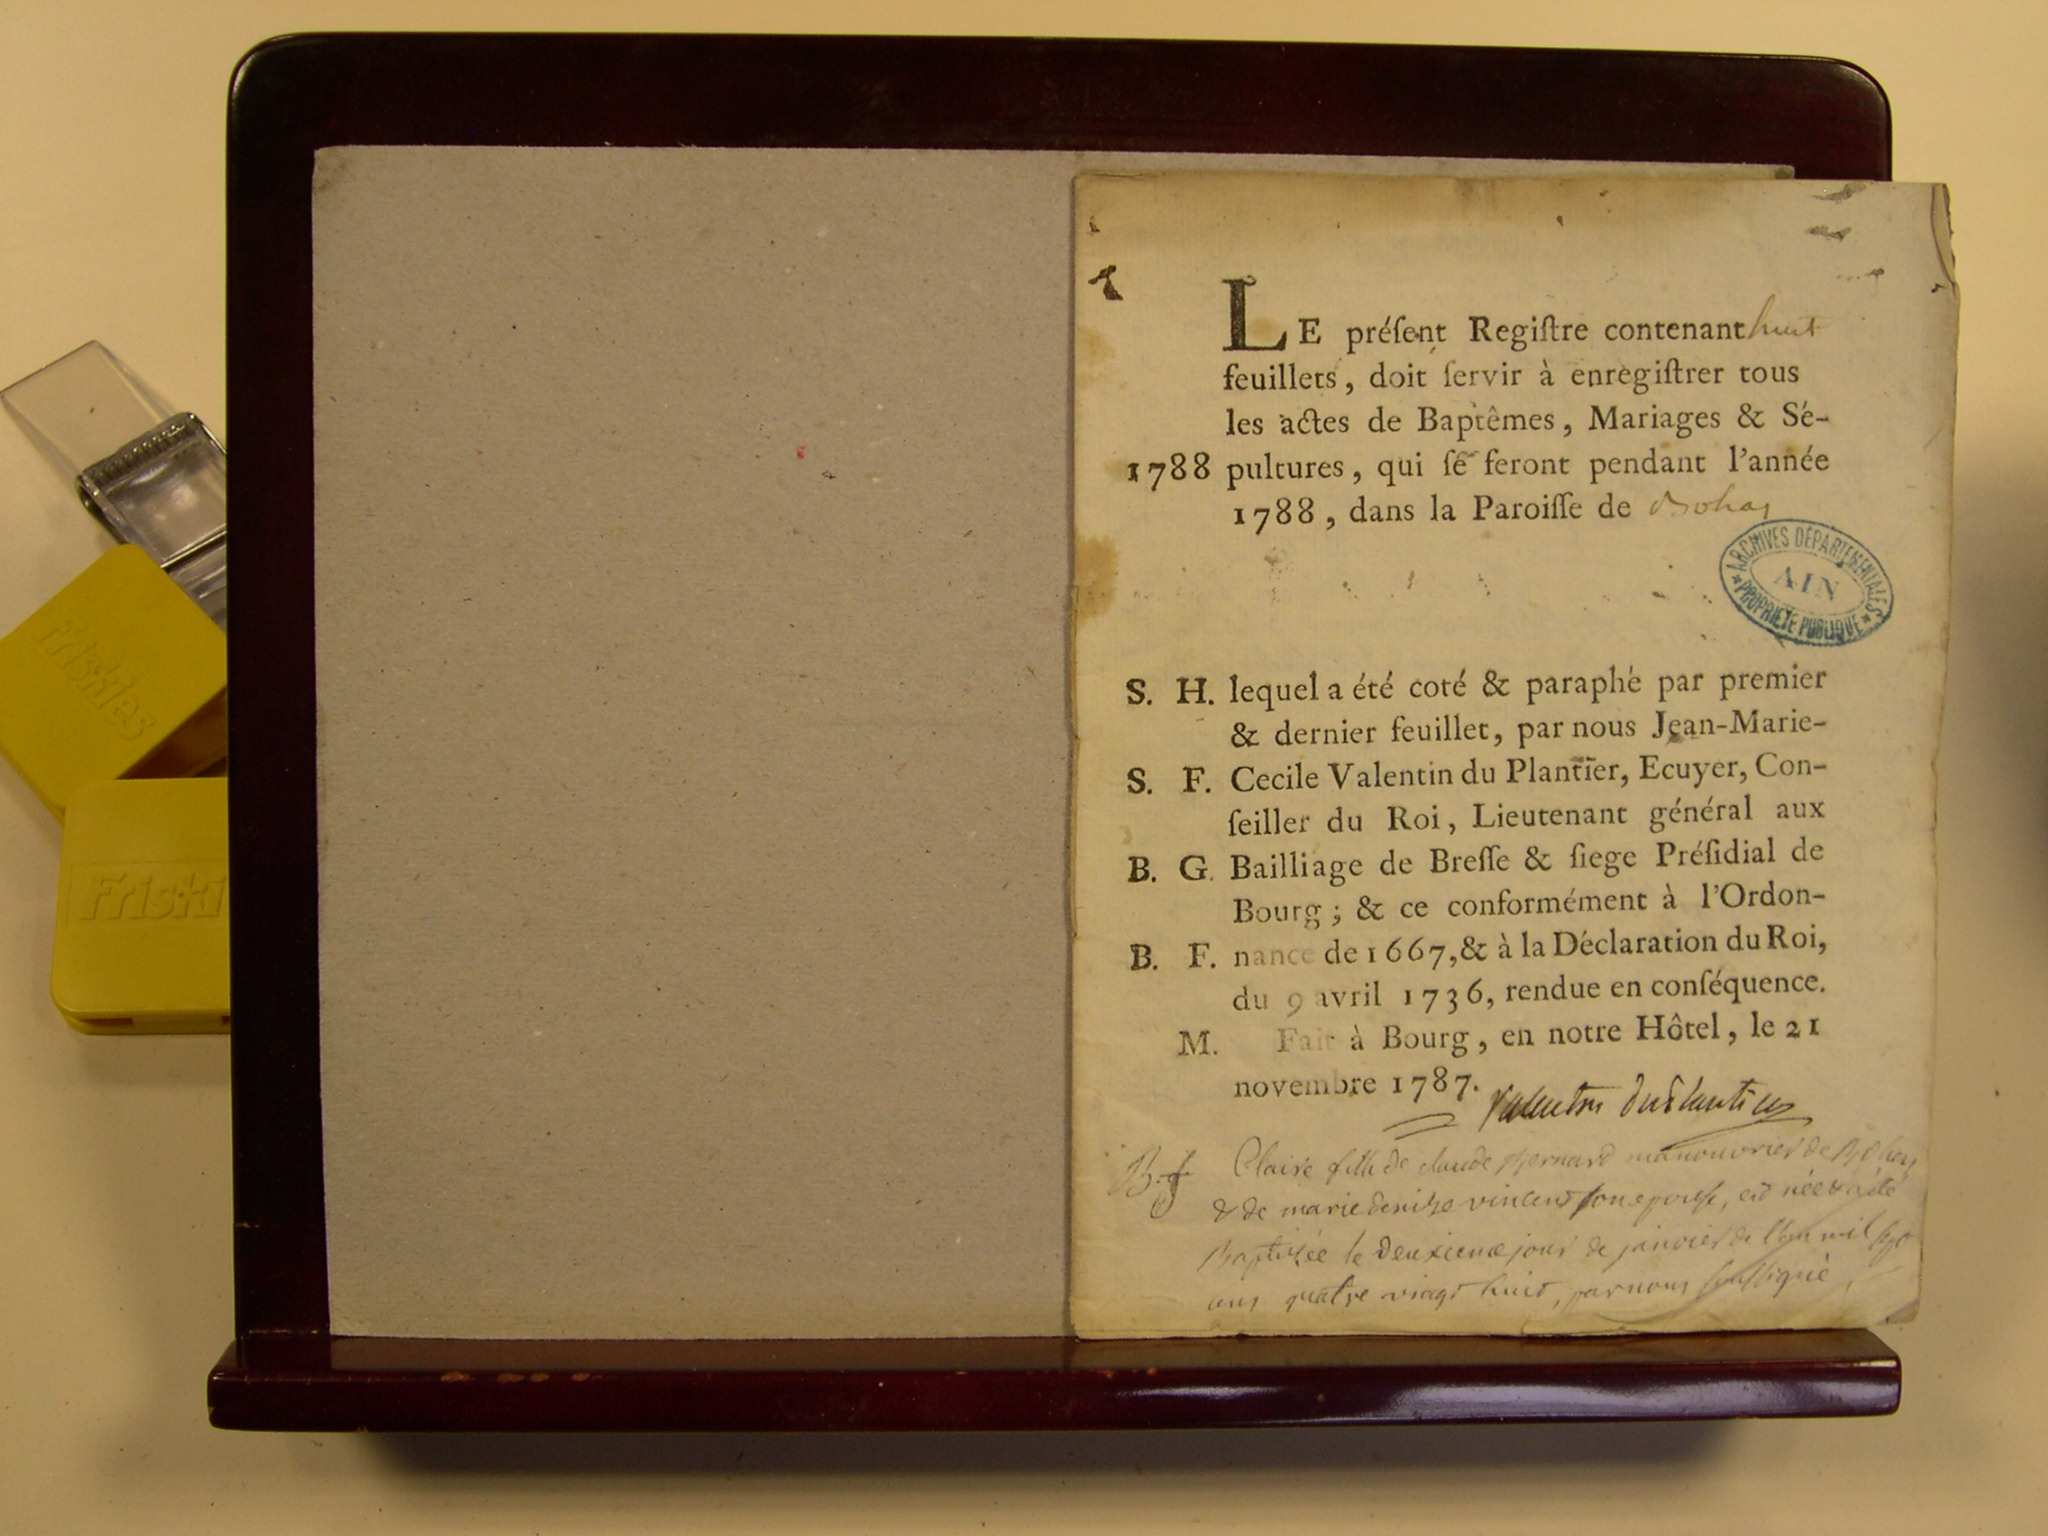 LE préſent Regiſtre contenant huit
feuillets, doit ſervir à enregiſtrer tous
les actes de Baptêmes, Mariages & Sé-
1788 pultures, qui ſe feront pendant l'année
1788, dans la Paroiſſe de Bohas
ARCHIVES DÉPARTEMENTALES
AIN
* PROPRIÉTÉ PUBLIQUE *
S. H. lequel a été coté & paraphé par premier
& dernier feuillet, par nous Jean-Marie-
S. F. Cecile Valentin du Plantier, Ecuyer, Con-
ſeiller du Roi, Lieutenant général aux
B. G. Bailliage de Breſſe & ſiege Préſidial de
Bourg; & ce conformément à l'Ordon-
B. F. nance de 1667, & à la Déclaration du Roi,
du 9 avril 1736, rendue en conſéquence.
M. Fait à Bourg, en notre Hôtel, le 21
novembre 1787. Valentin duPlantier
B. f Claire fille de claude Bernard manouvrier de Bohas
& de marie denise vincent son epouse, est née & a été
Baptisée le Deuxieme jour de janvier de l'an mil sept
cens quatre vingt huit, par nous soussigné
Friskies
Friski